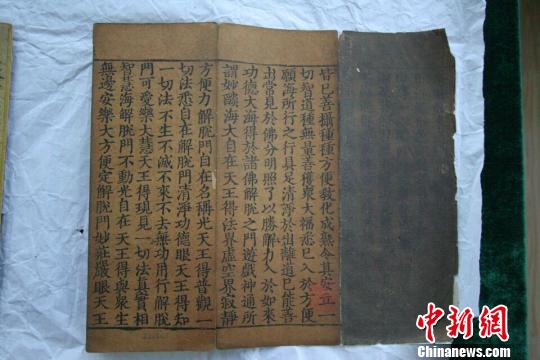 皆已善攝種種方便教化成熟令其安立一
切智道種無量善獲衆大福悉已入於方便
願海所行之行具足清淨於出離道已能善
出常見於佛分明照了以勝解力入於如來
功德大海得於諸佛解脫之門遊戲神通所
謂妙燄海大自在天王得法界虛空界寂靜
方便力解脫門自在名稱光天王得普觀一
切法悉自在解脫門清淨功德眼天王得知
一切法不生不滅不來不去無功用行解脫
門可愛樂大慧天王得現見一切法真實相
智慧海解脫門不動光自在天王得與衆生
無邊安樂大方便定解脫門妙莊嚴眼天王
中新网
Chinanews.com